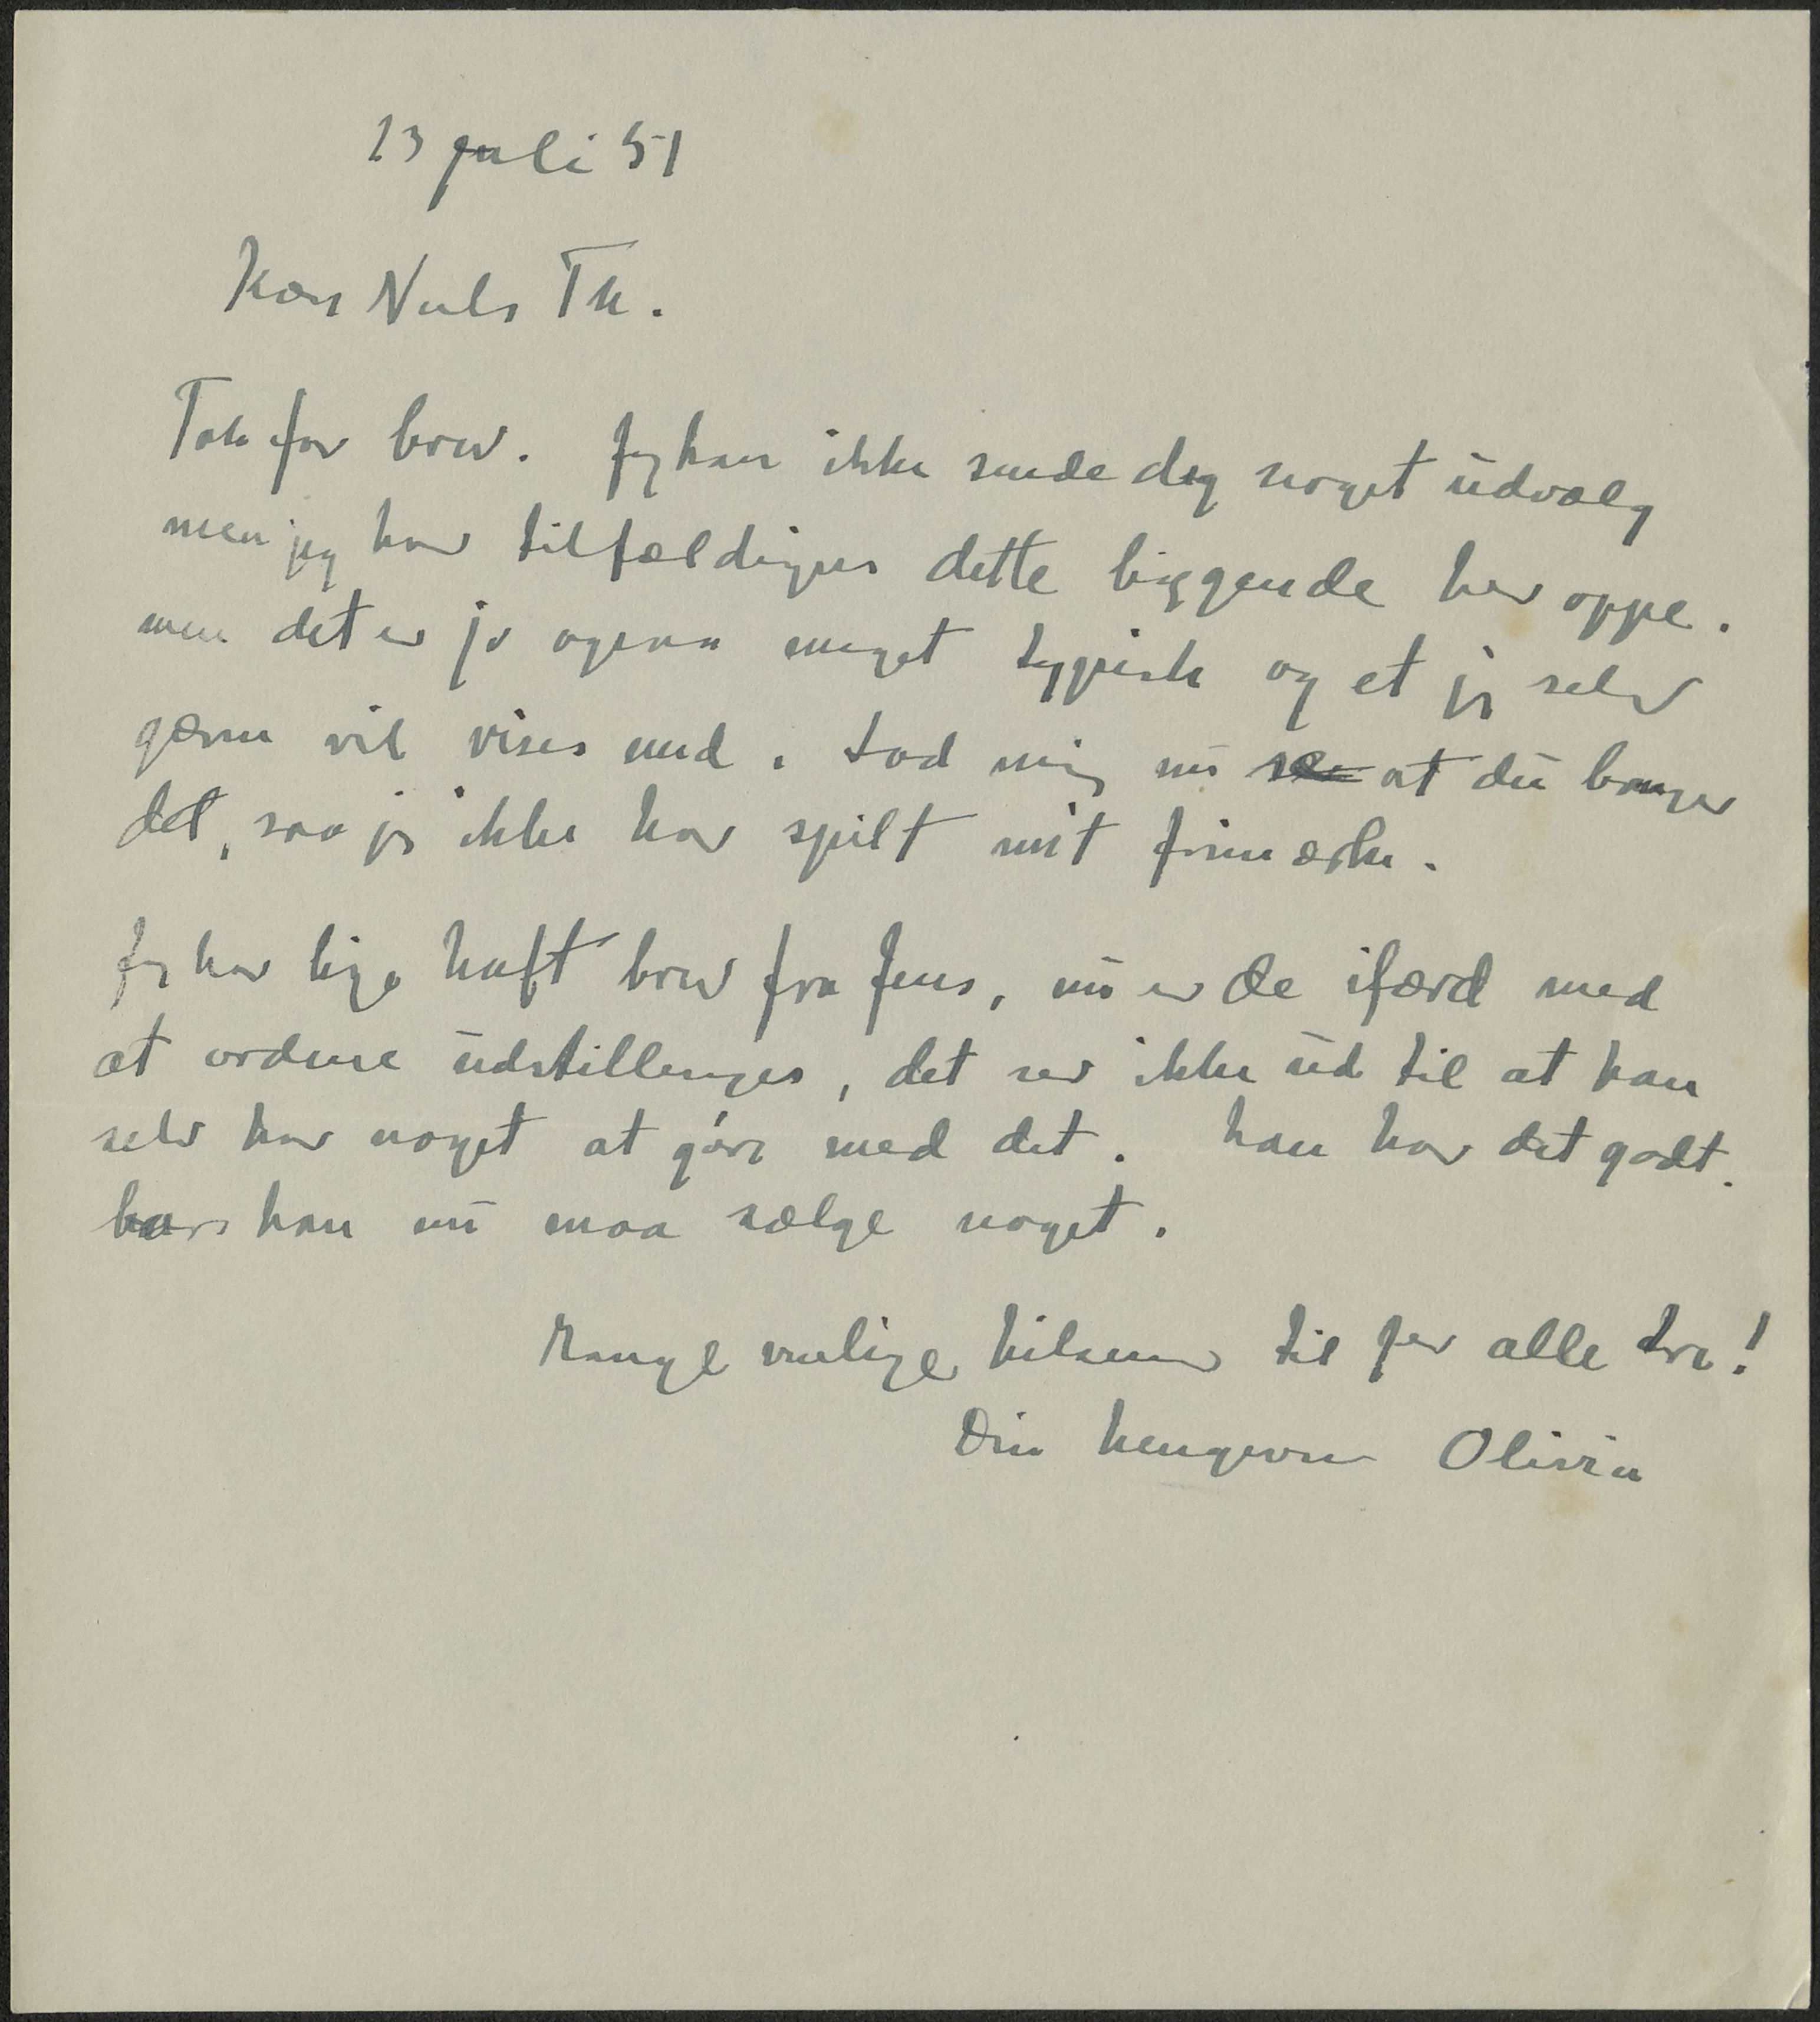 13 juli 51
Kære Niels Th.
Tak for brev. Jeg kan ikke sende dig noget udvalg
men jeg har tilfældigvis dette liggende her oppe.
men det er jo ogsaa meget typisk og et jeg selv
gærne vil vises med. Lad mig nu se at du bruger
det, saa jeg ikke har spilt mit frimærke.
Jeg har lige haft brev fra Jens, nu er de ifærd med
at ordne udstillingen, det ser ikke ud til at han
selv har noget at göre med det. han har det godt.
bare han nu maa sælge noget.
Mange venlige hilsener til jer alle tre!
Din hengivne Olivia